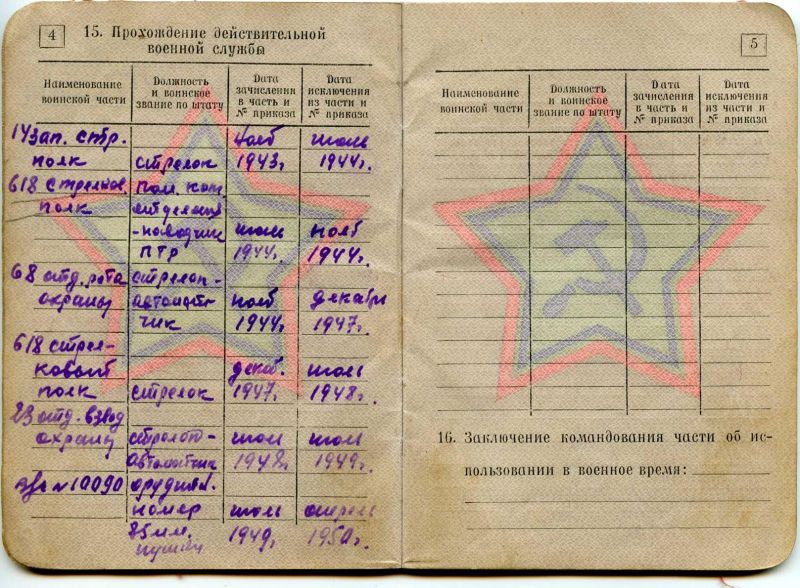 4
15. Прохождение действительной
военной службы
Наименование
воинской части
Должность
и воинское
звание по штату
Дата
зачисления
в часть и
№ приказа
Дата
исключения
из части и
№ приказа
143ап. стр. нояб июль
полк стрелок 1943г. 1944г.
618 стрелков. пом. ком.
полк отделения
-наводчик июль нояб
ПТР 1944г. 1944г.
68 отд. рота стрелок-
охраны автомат нояб декабрь
чик 1944г. 1947г.
618 стрел-
ковый декаб. июль
полк стрелок 1947г. 1948г.
23 отд. взвод
охраны стрелок- июль июль
автоматчик 1948г. 1949г.
в/ч №10090 орудийн.
номер июль апрель
85мм. 1949г. 1950г.
пушки
5
Наименование
воинской части
Должность
и воинское
звание по штату
Дата
зачисления
в часть и
№ приказа
Дата
исключения
из части и
№ приказа
16. Заключение командования части об ис-
пользовании в военное время: